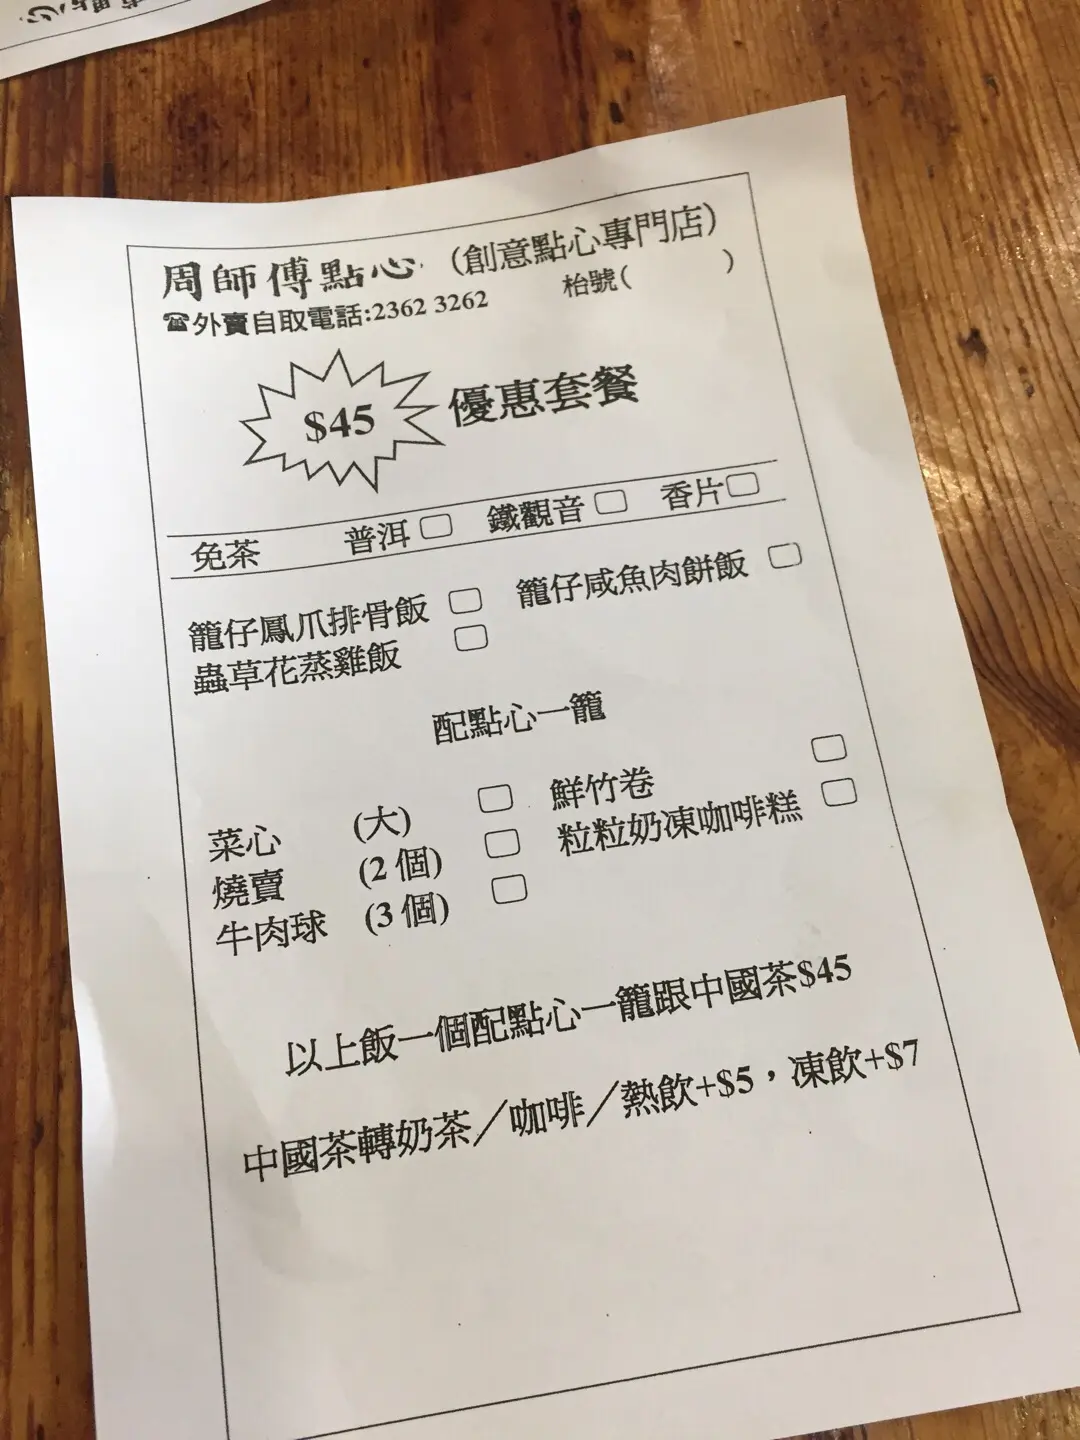 周師傅點心 (創意點心專門店)
☎外賣自取電話:2362 3262 枱號( )
$45 優惠套餐
免茶 普洱 鐵觀音 香片
籠仔鳳爪排骨飯 籠仔咸魚肉餅飯
蟲草花蒸雞飯
配點心一籠
菜心 (大) 鮮竹卷
燒賣 (2 個) 粒粒奶凍咖啡糕
牛肉球 (3 個)
以上飯一個配點心一籠跟中國茶$45
中國茶轉奶茶／咖啡／熱飲+$5，凍飲+$7